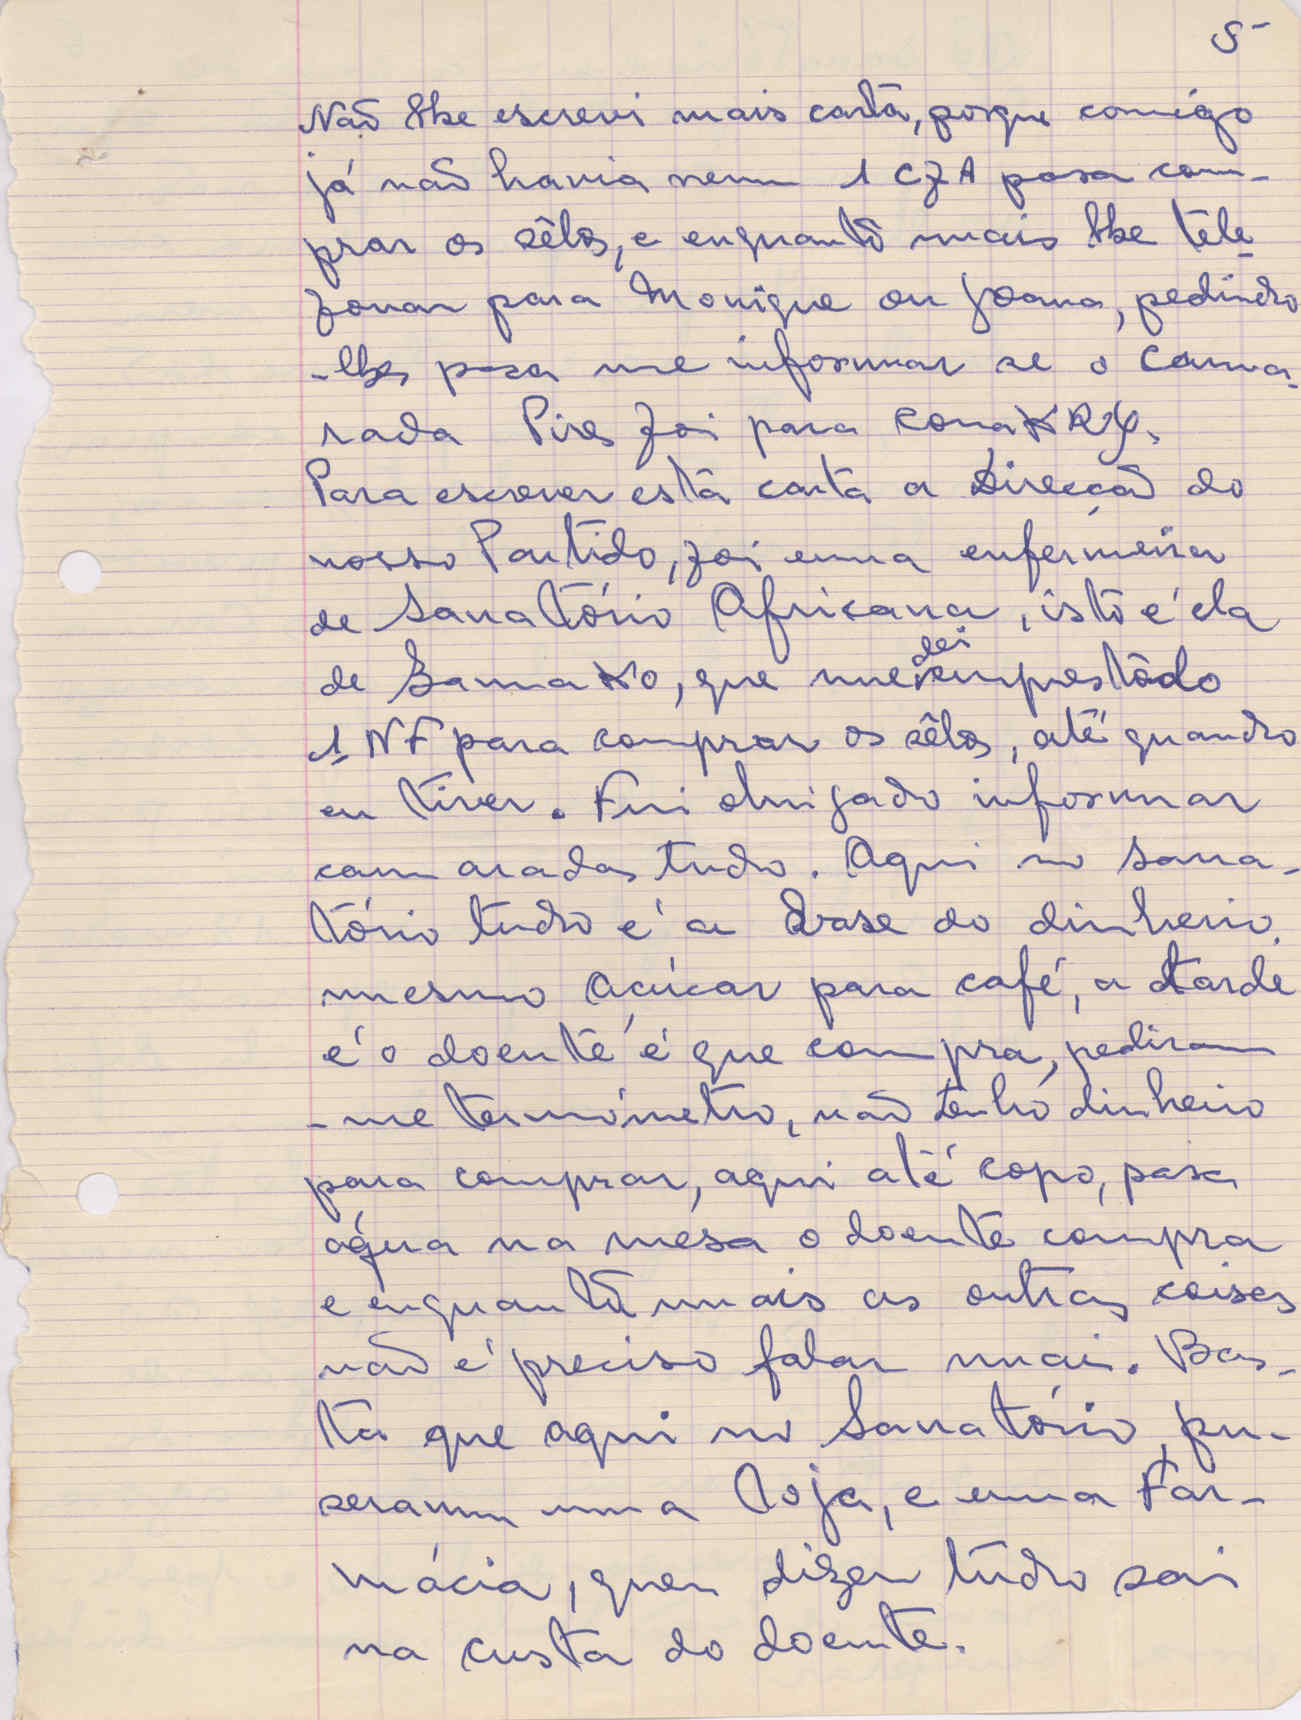 5-
Não lhe escrevi mais carta, porque comigo
já não havia nem 1 CZA para com-
prar os sêlos, e enquanto mais lhe tele-
fonar para Monique ou Joana, pedindo
-lhes para me informar se o Cama-
rada Pires foi para ConaKRY.
Para escrever esta carta a Direcção do
nosso Partido, foi uma enfermeira
de Sanatório Africana, isto é ela
de BamaKo, que me dei empestado
1 NF para comprar os sêlos, até quando
eu tiver. Fui obrigado informar
camaradas tudo. Aqui no Sana-
tório tudo é a Base do dinheiro.
mesmo Acúcar para café, a tarde
é o doente é que compra, pediram
-me termómetro, não tenho dinheiro
para comprar, aqui até copo, para
água na mesa o doente compra
e enquanto mais as outras coisas
não é preciso falar mais. Bas-
ta que aqui no Sanatório, pu-
seram uma Loja, e uma Far-
mácia, quer dizer tudo sai
na custa do doente.